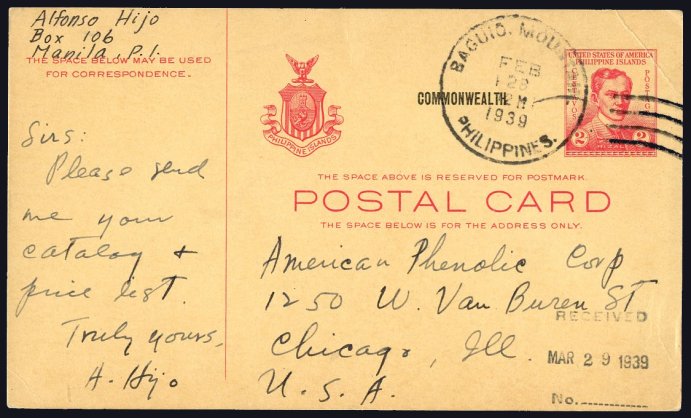 Alfonso Hijo
Box 106
Manila, P.I.
THE SPACE BELOW MAY BE USED
FOR CORRESPONDENCE.
Sirs:
Please send
me your
catalog +
price list.
Truly yours,
A. Hijo
PHILIPPINE ISLANDS
COMMONWEALTH
BAGUIO, MOUNT
FEB
28
1939
PHILIPPINES.
UNITED STATES OF AMERICA
PHILIPPINE ISLANDS
POSTAGE
2 2
THE SPACE ABOVE IS RESERVED FOR POSTMARK.
POSTAL CARD
THE SPACE BELOW IS FOR THE ADDRESS ONLY.
American Phenolic Corp
1250 W. Van Buren ST
Chicago, Ill.
U.S.A.
RECEIVED
MAR 29 1939
No.